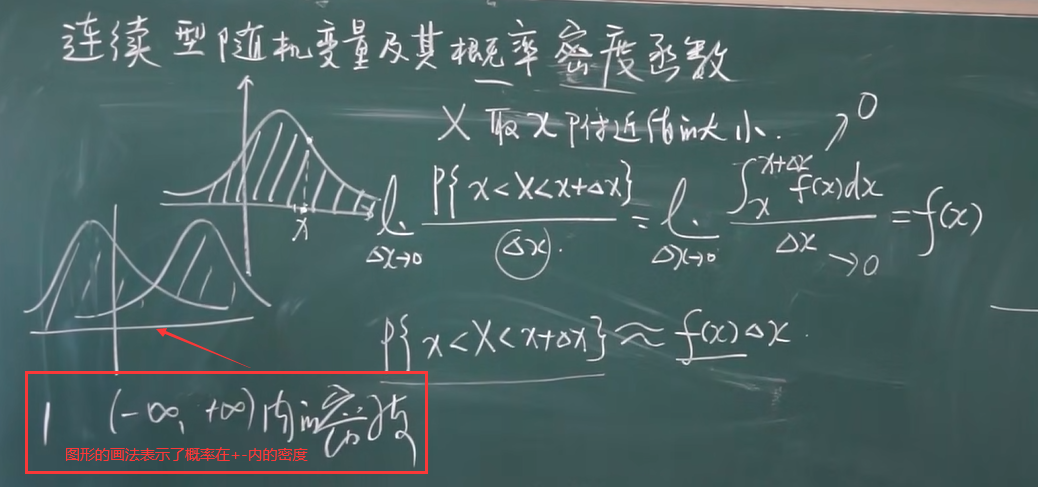 连续型随机变量及其概率密度函数
X 取 x 附近值的大小. ↗0
x
lim Δx→0 P{x<X<x+Δx} / Δx = lim Δx→0 ∫_x^{x+Δx} f(x)dx / Δx →0 = f(x)
P{x<X<x+Δx} ≈ f(x)Δx.
1 (-∞, +∞)内的密度
图形的画法表示了概率在+-内的密度